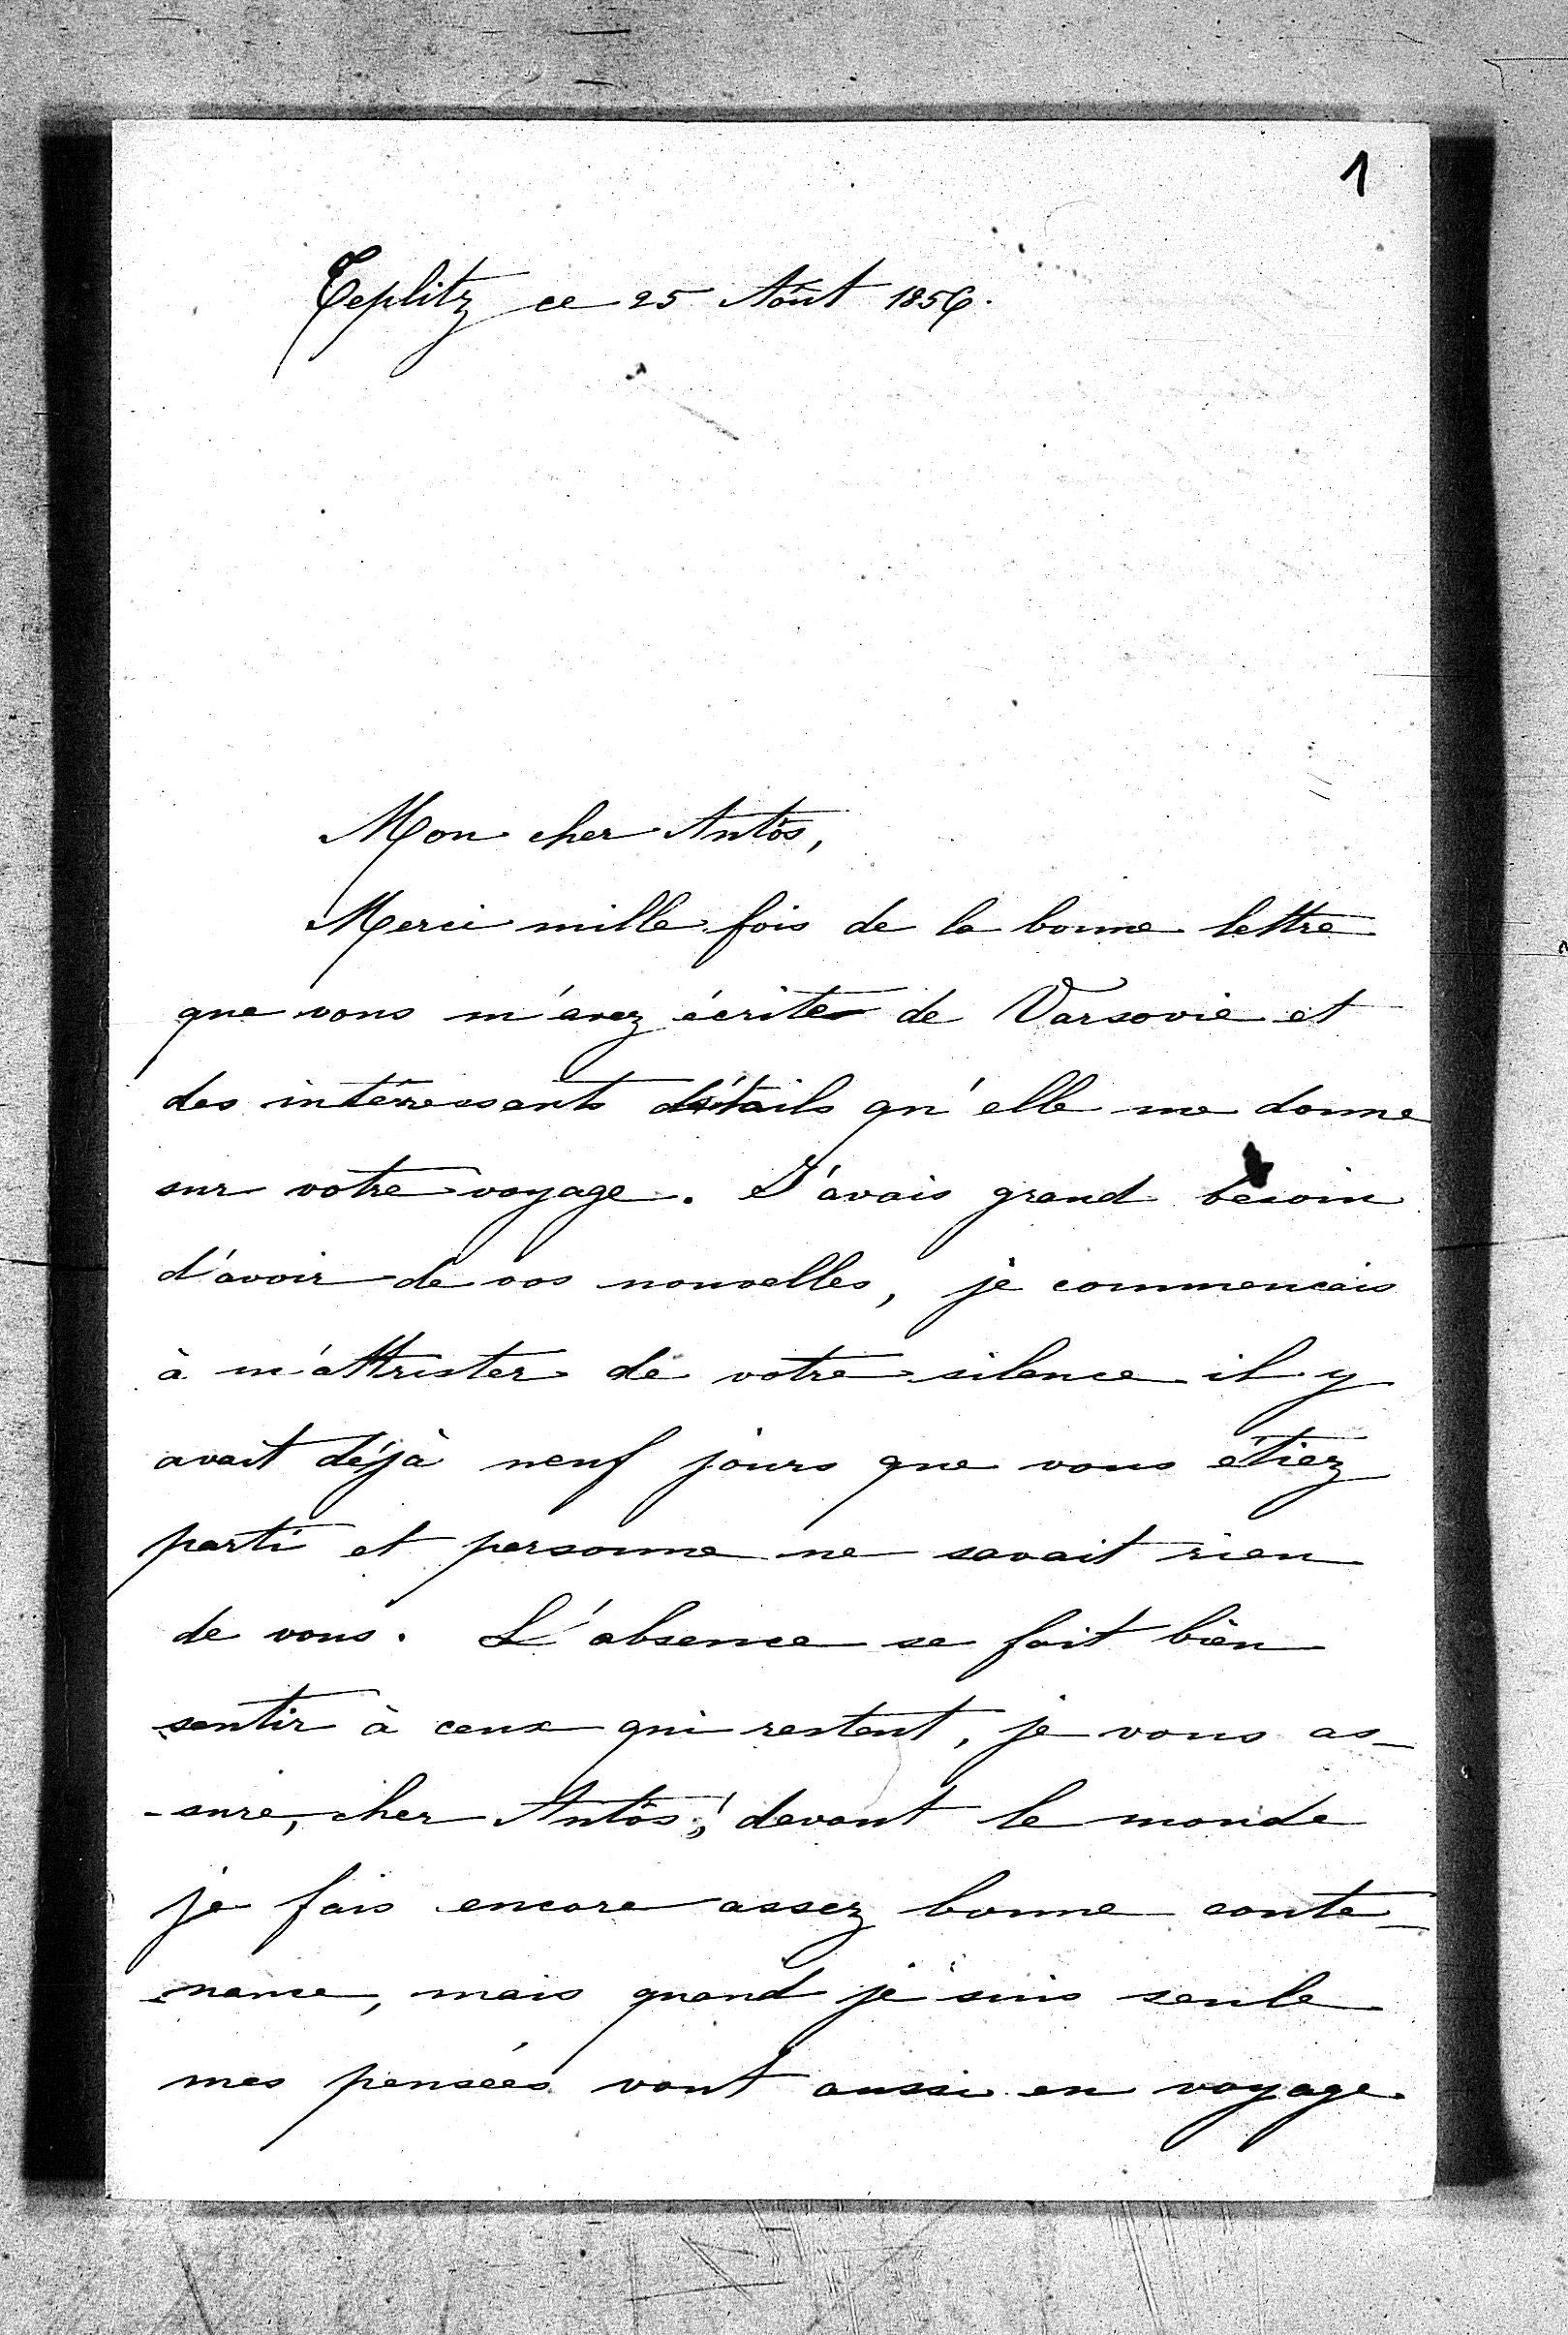 1
Teplitz ce 25 Août 1856.
Mon cher Antòs,
Merci mille fois de la bonne lettre
que vous m'avez écrite de Varsovie et
des intéressants détails qu'elle me donne
sur votre voyage. J'avais grand besoin
d'avoir de vos nouvelles, je commencais
à m'attrister de votre silence il y
avait déjà neuf jours que vous étiez
parti et personne ne savait rien
de vous. L'absence se fait bien
sentir à ceux qui restent, je vous as-
-sure, cher Antòs; devant le monde
je fais encore assez bonne conte-
-nance, mais quand je suis seule
mes pensées vont aussi en voyage.